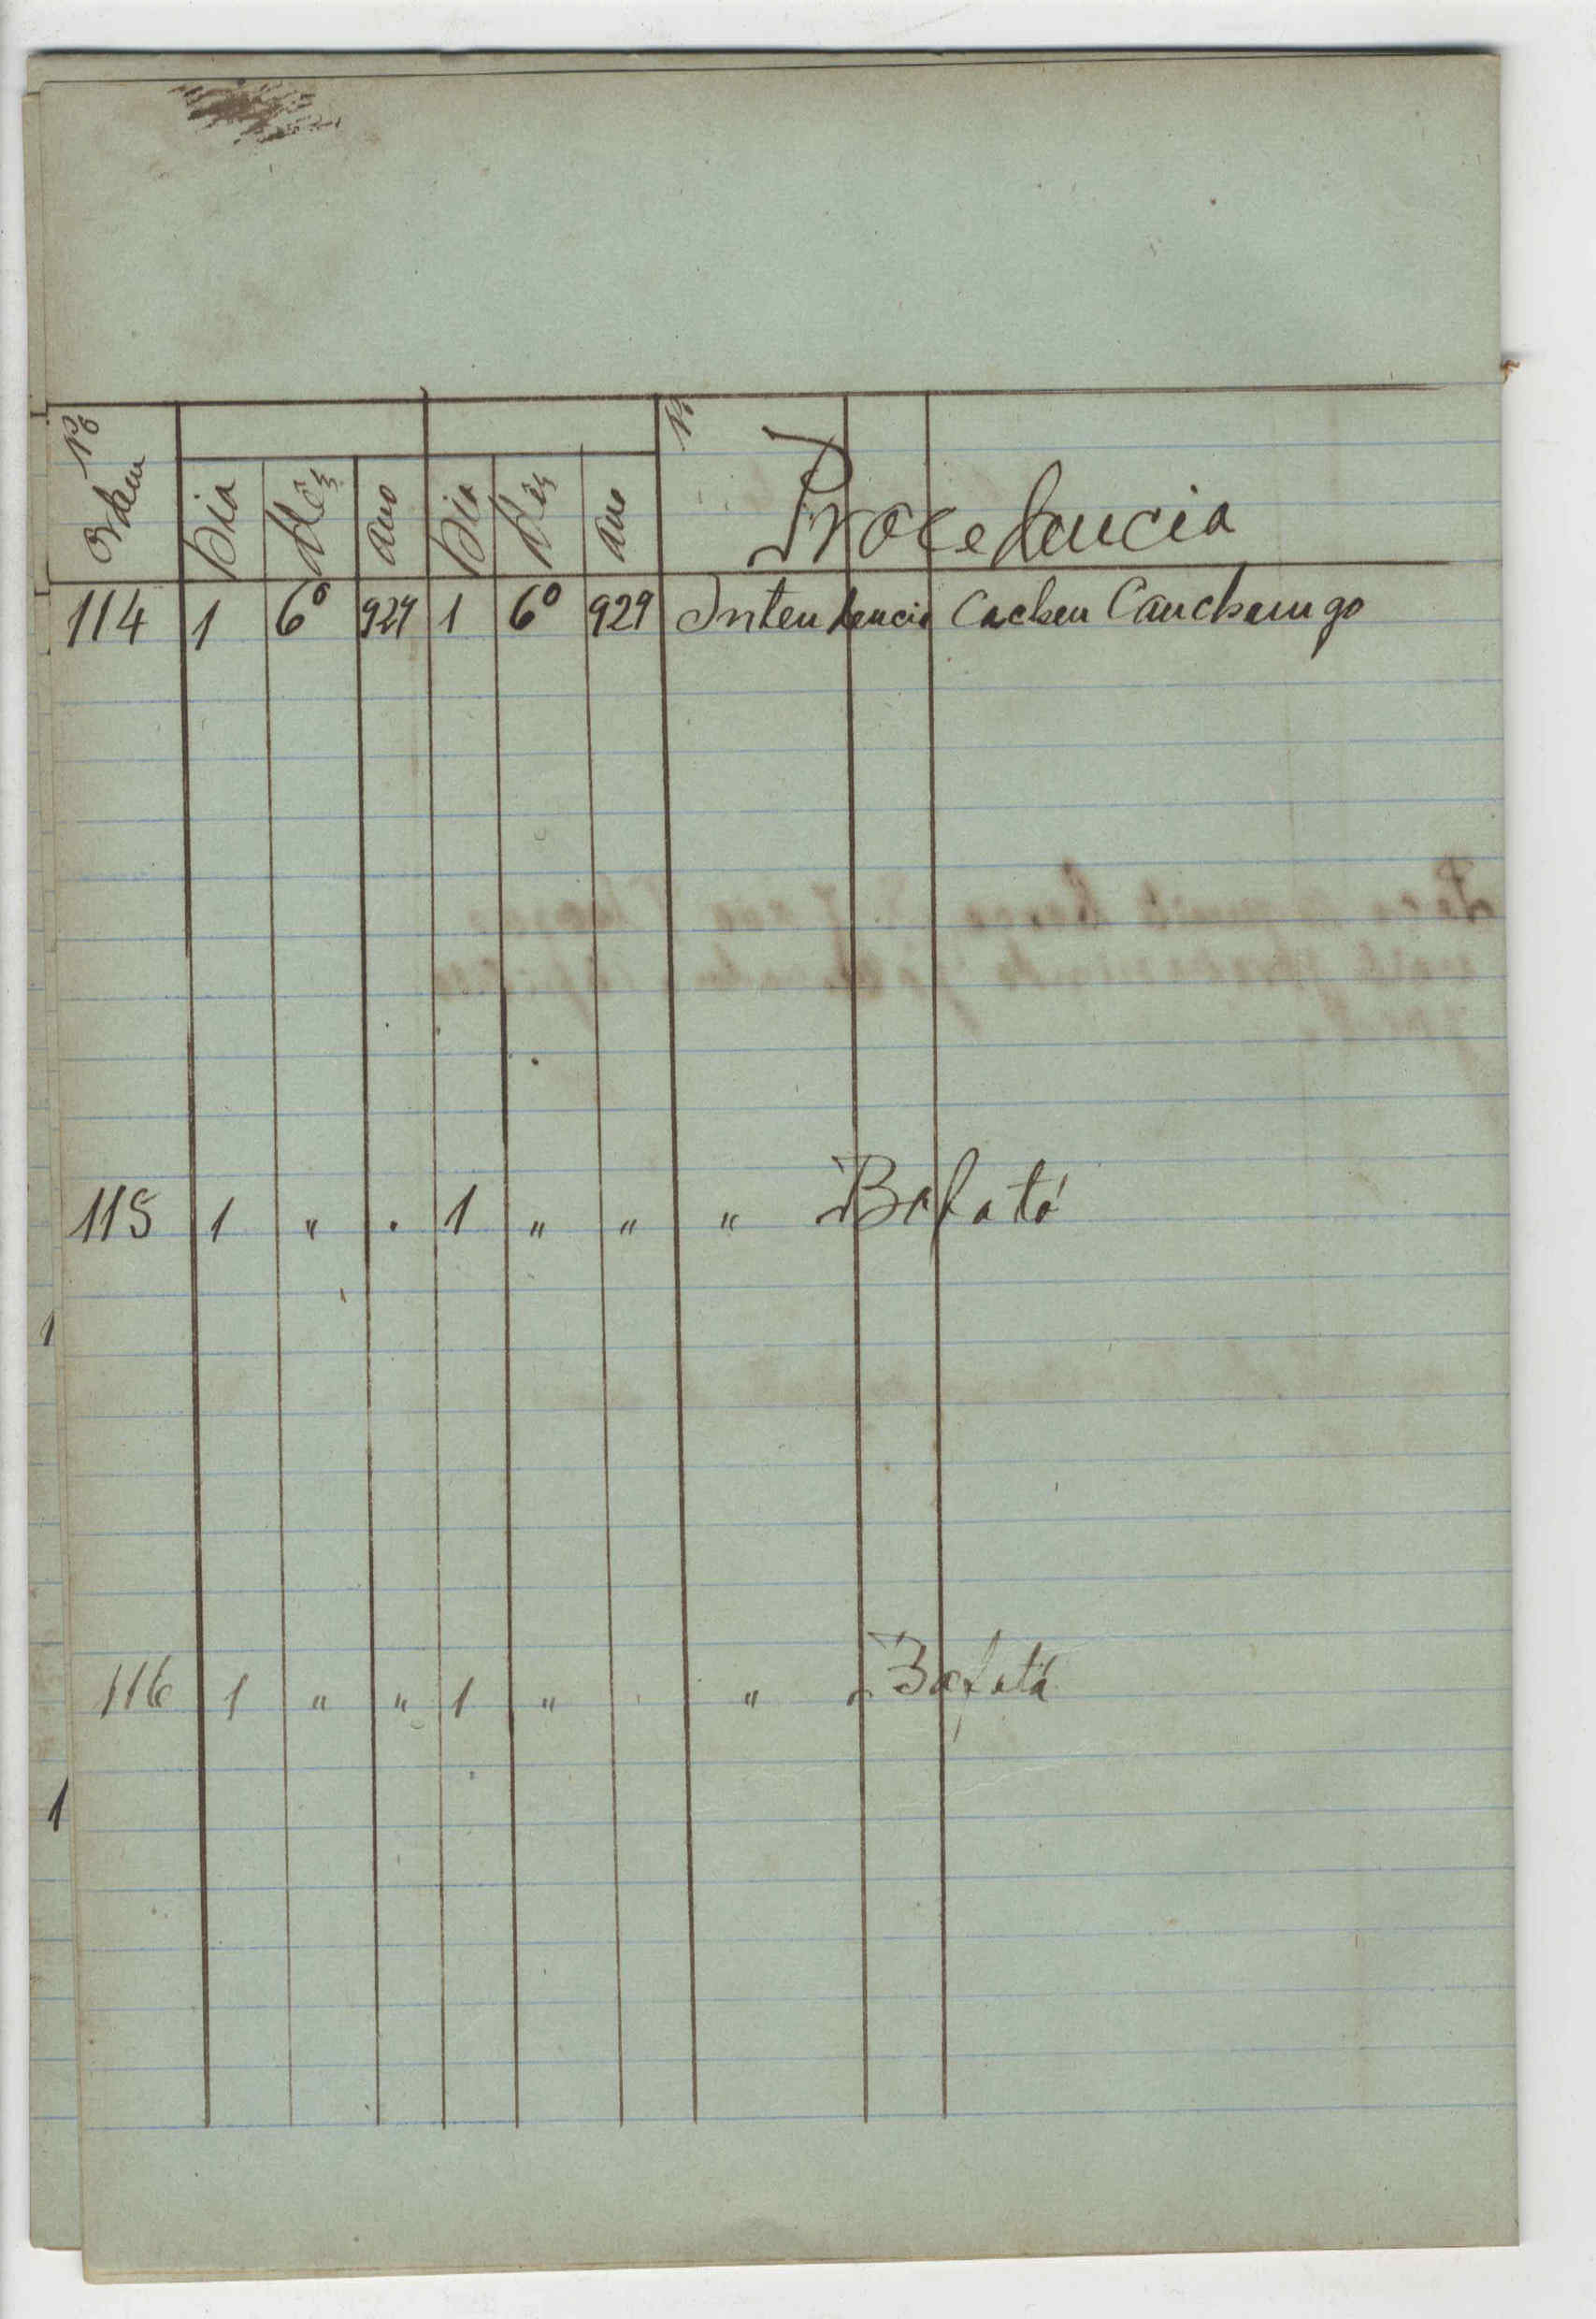 Nº Ordem Dia Mês ano Dia Mês ano Nº Procedencia
114 1 6º 929 1 6º 929 Intendencia Cacheu Canchungo
115 1 " . 1 " " " Bafatá
116 1 " " 1 " " Bafatá
1
1